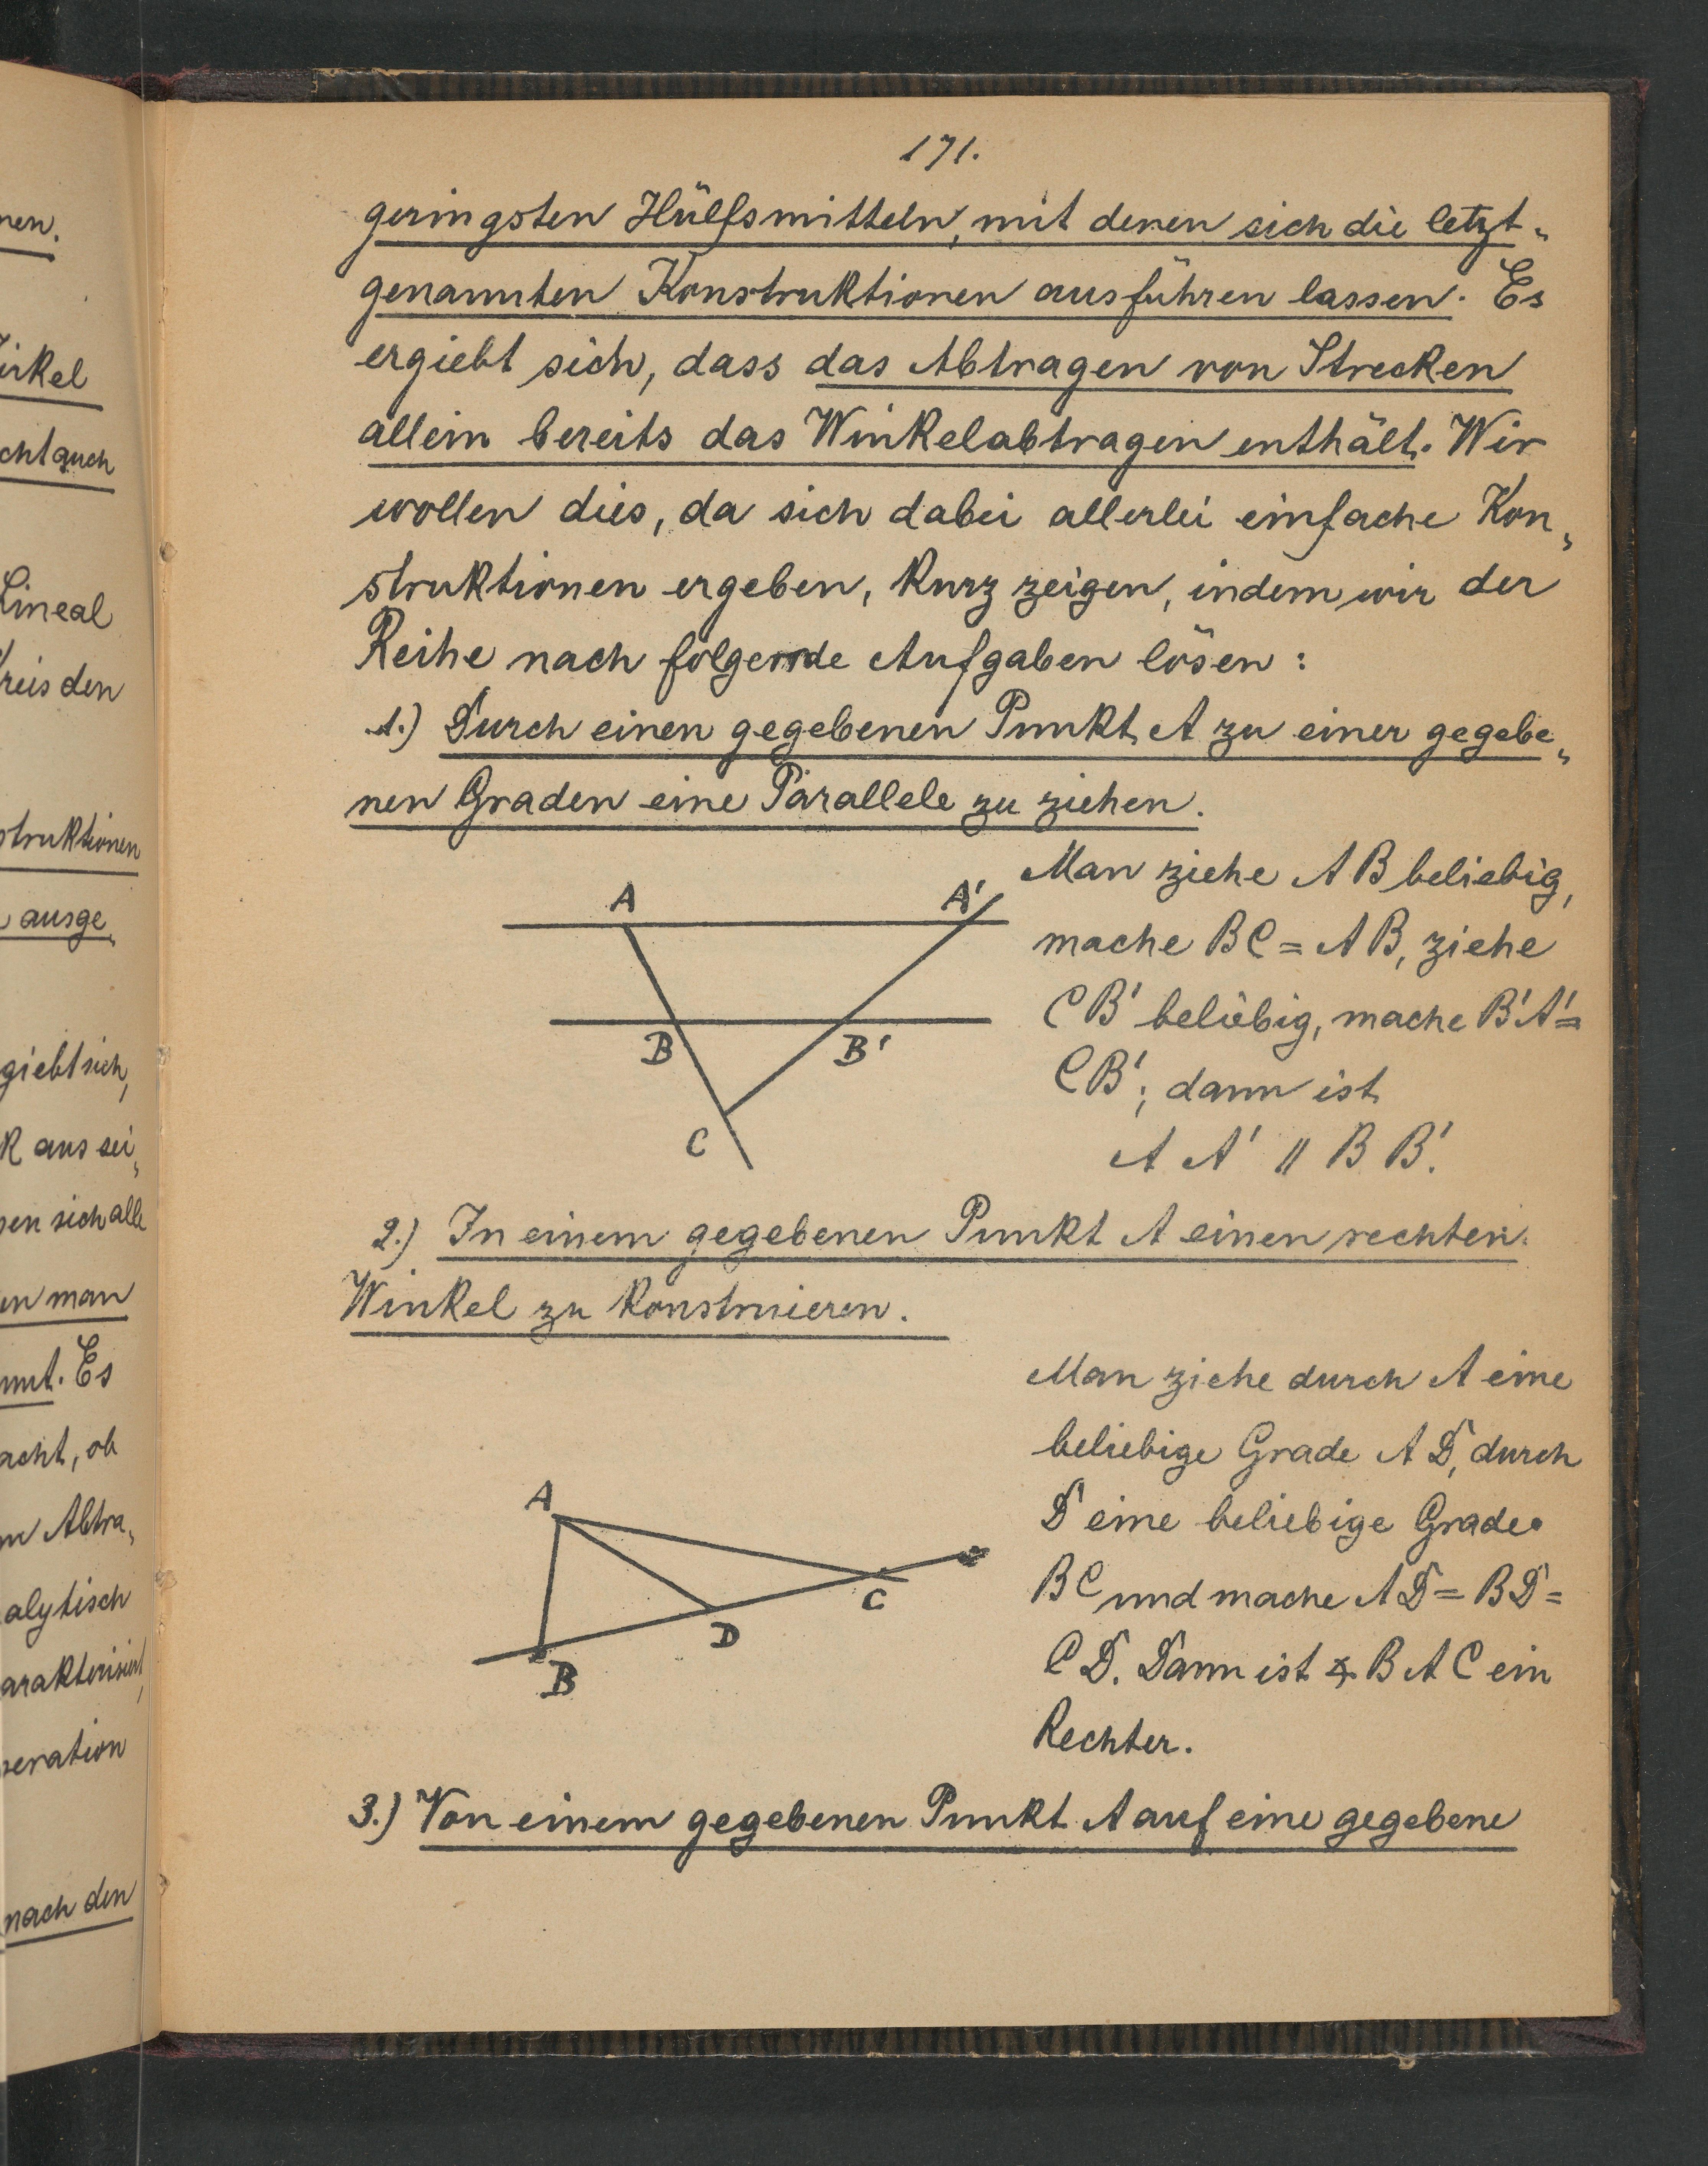 nen.
irkel
cht auch
Lineal
reis den
struktionen
ausge„
giebt sich,
k aus sei„
sen sich alle
en man
mmt. Es
acht, ob
m Abtra„
alytisch
arakterisiert,
peration
nach den
171.
geringsten Hülfsmitteln, mit denen sich die letzt„
genannten Konstruktionen ausführen lassen. Es
ergiebt sich, dass das Abtragen von Strecken
allein bereits das Winkelabtragen enthält. Wir
wollen dies, da sich dabei allerlei einfache Kon„
struktionen ergeben, kurz zeigen, indem wir der
Reihe nach folgende Aufgaben lösen:
1.) Durch einen gegebenen Punkt A zu einer gegebe„
nen Graden eine Parallele zu ziehen.
A A'
B B'
C
Man ziehe AB beliebig,
mache BC = AB, ziehe
CB' beliebig, mache B'A' =
CB'; dann ist
A A' || B B'.
2.) In einem gegebenen Punkt A einen rechten
Winkel zu konstruieren.
A
C
D
B
Man ziehe durch A eine
beliebige Grade AD, durch
D eine beliebige Grade
BC und mache AD = BD =
CD. Dann ist ∢ BAC ein
Rechter.
3.) Von einem gegebenen Punkt A auf eine gegebene